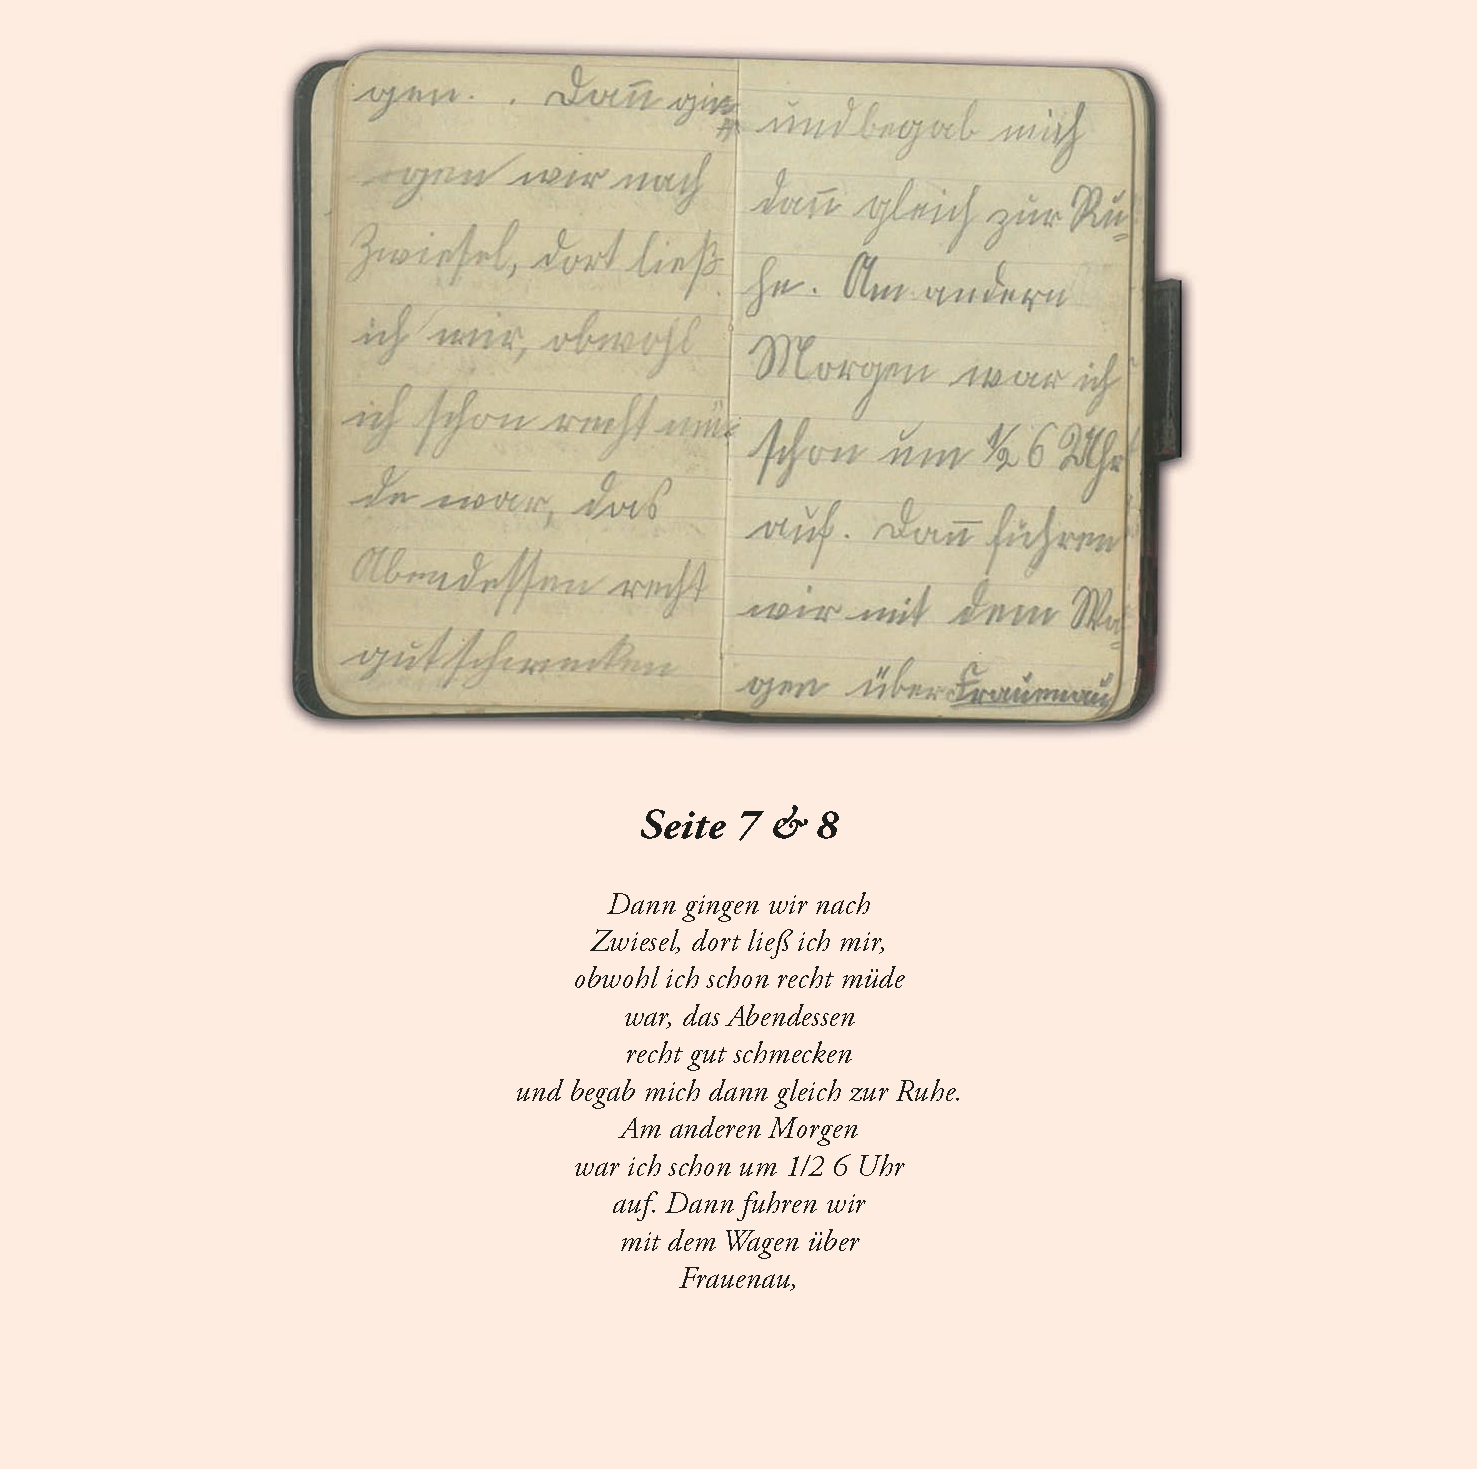 gen. . Dan̄ gin=
gen wir nach
Zwiesel, dort ließ
ich mir, obwohl
ich schon recht mü=
de war, das
Abendessen recht
gut schmecken
und begab mich
dan̄ gleich zur Ru=
he. Am andern
Morgen war ich
schon um ½ 6 Uhr
auf. Dan̄ fuhren
wir mit dem Wa=
gen über Frauenau,
Seite 7 & 8
Dann gingen wir nach
Zwiesel, dort ließ ich mir,
obwohl ich schon recht müde
war, das Abendessen
recht gut schmecken
und begab mich dann gleich zur Ruhe.
Am anderen Morgen
war ich schon um 1/2 6 Uhr
auf. Dann fuhren wir
mit dem Wagen über
Frauenau,